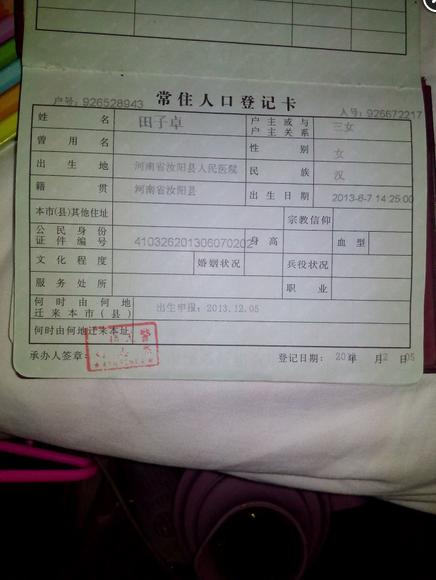 常住人口登记卡
户号: 926528943
人号: 926672217
姓名 田子卓 户主或与户主关系 三女
曾用名 性别 女
出生地 河南省汝阳县人民医院 民族 汉
籍贯 河南省汝阳县 出生日期 2013-6-7 14:25:00
本市(县)其他住址 宗教信仰
公民身份证件编号 410326201306070202 身高 血型
文化程度 婚姻状况 兵役状况
服务处所 职业
何时由何地迁来本市(县) 出生申报: 2013.12.05
何时由何地迁来本址
承办人签章: 登记日期: 年 月 日05